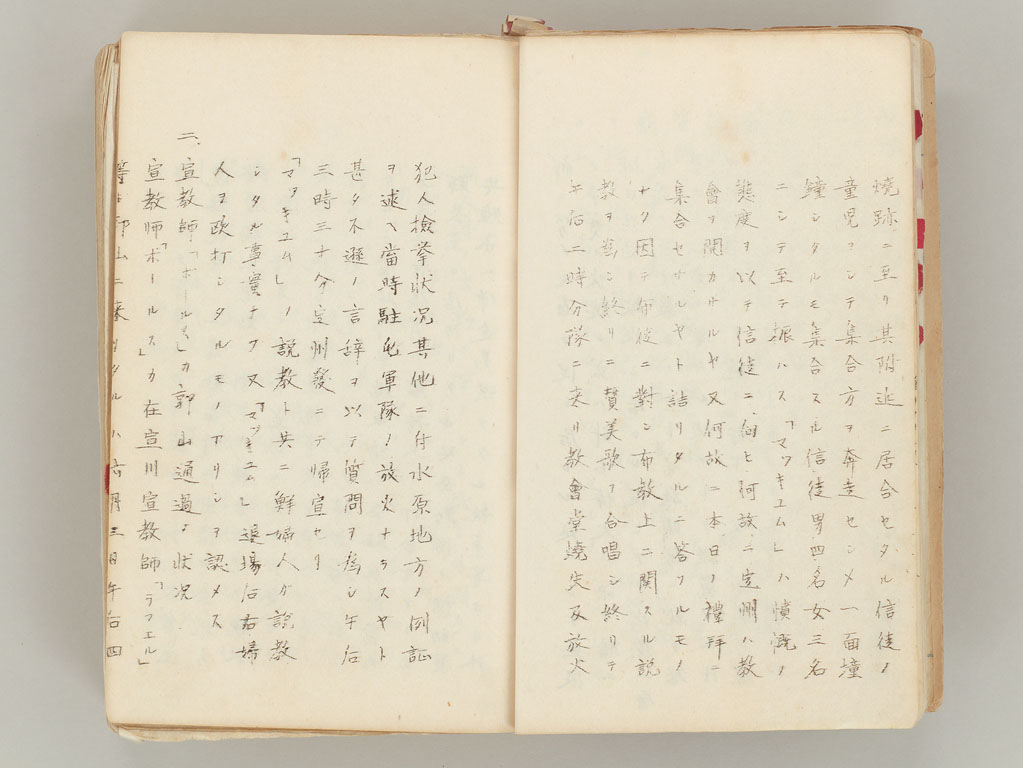 燒跡ニ至リ其附近ニ居合セタル信徒ノ
童児ヲシテ集合方ヲ奔走セシメ一面撞
鐘シタルモ集合スル信徒男四名女三名
ニシテ至テ振ハス「マツキユム」ハ憤慨ノ
態度ヲ以テ信徒ニ向ヒ何故ニ定州ハ教
會ヲ開カサルヤ又何故ニ本日ノ禮拜ニ
集合セサルヤト詰リタルニ答フルモノ
ナク因テ布徒ニ對シ布教上ニ関スル説
教ヲ為シ終リニ賛美歌ヲ合唱シ終リテ
午后二時分隊ニ来リ教會堂燒失及放火
犯人檢挙状况其他ニ付水原地方ノ例証
ヲ述ヘ當時駐屯軍隊ノ放火ナラスヤト
甚タ不遜ノ言辞ヲ以テ質問ヲ為シ午后
三時三十分定州發ニテ帰宣セリ
「マツキユム」ノ説教ト共ニ鮮婦人ガ説教
シタル事實ナク又「マツキユム」退場后右婦
人ヲ殴打シタルモノナリシヲ認メス
二、宣教師「ポールス」カ郭山通過ノ状况
宣教師「ポールス」カ在宣川宣教師「ラフエル」
等ト郭山ニ来リタルハ六月三日午后四